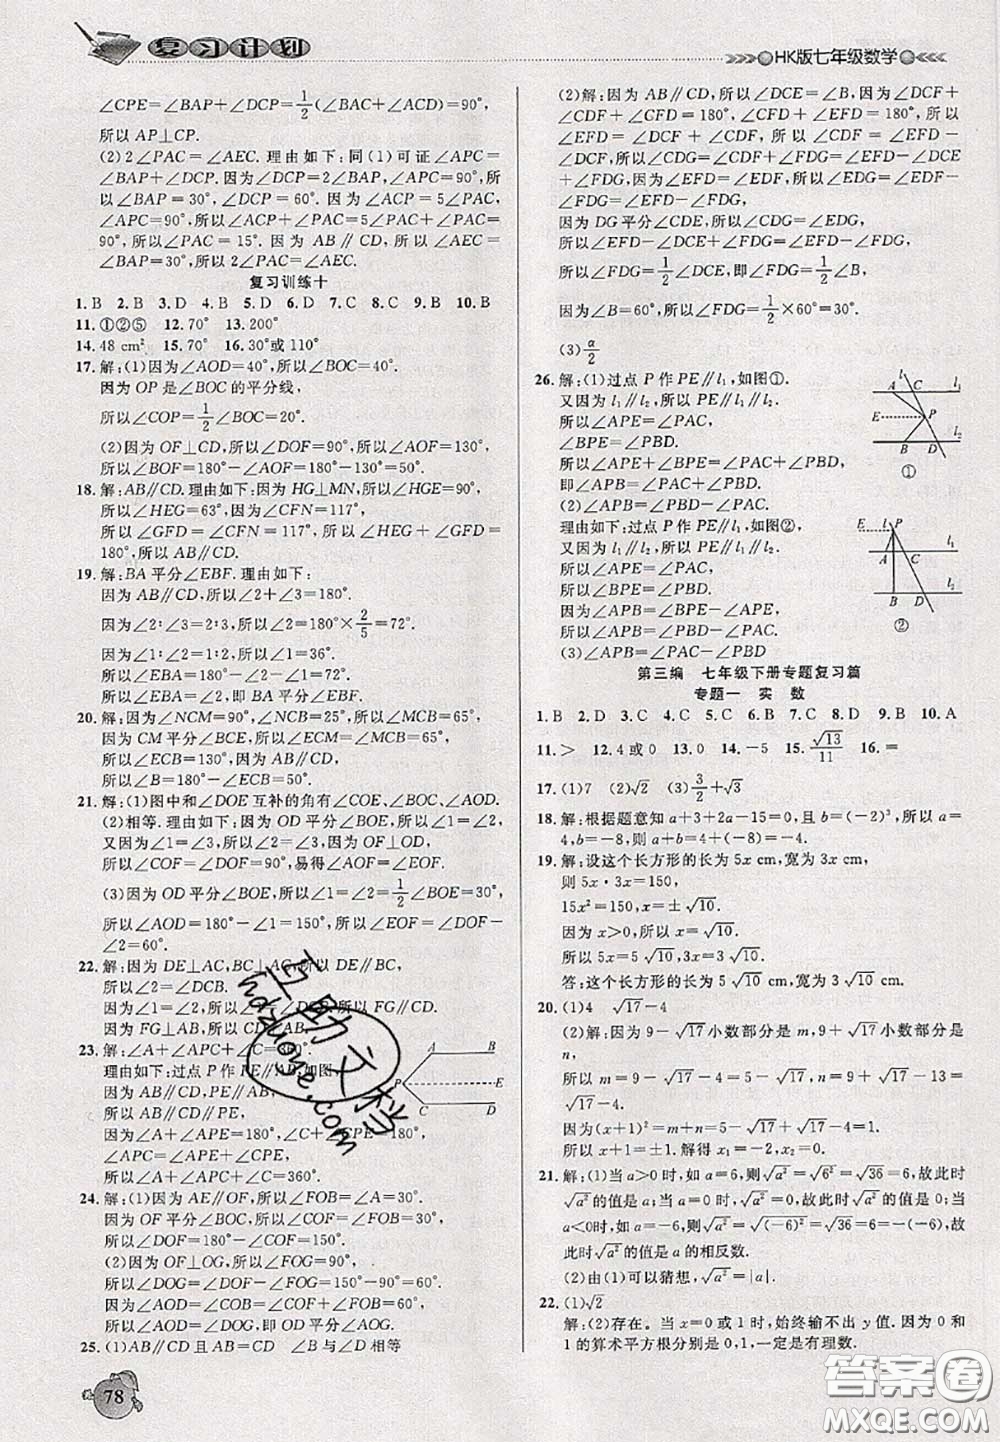 复习计划
HK版七年级数学
∠CPE=∠BAP+∠DCP=1/2(∠BAC+∠ACD)=90°,
所以 AP⊥CP.
(2)2∠PAC=∠AEC. 理由如下:同(1)可证∠APC=
∠BAP+∠DCP. 因为∠DCP=2∠BAP,∠APC=90°,所
以∠BAP=30°,∠DCP=60°. 因为∠ACP=5∠PAC,
∠APC=90°,所以∠ACP+∠PAC=5∠PAC+∠PAC=
90°,所以∠PAC=15°. 因为 AB∥CD,所以∠AEC=
∠BAP=30°,所以 2∠PAC=∠AEC.
复习训练十
1.B 2.B 3.D 4.B 5.D 6.D 7.C 8.C 9.B 10.B
11.①②⑤ 12.70° 13.200°
14.48 cm² 15.70° 16.30°或 110°
17. 解:(1)因为∠AOD=40°,所以∠BOC=40°.
因为 OP 是∠BOC 的平分线,
所以∠COP=1/2∠BOC=20°.
(2)因为 OF⊥CD,所以∠DOF=90°,所以∠AOF=130°,
所以∠BOF=180°-∠AOF=180°-130°=50°.
18. 解:AB∥CD. 理由如下:因为 HG⊥MN,所以∠HGE=90°,
所以∠HEG=63°,因为∠CFN=117°,
所以∠GFD=∠CFN=117°,所以∠HEG+∠GFD=
180°,所以 AB∥CD.
19. 解:BA 平分∠EBF. 理由如下:
因为 AB∥CD,所以∠2+∠3=180°.
因为∠2:∠3=2:3,所以∠2=180°×2/5=72°.
因为∠1:∠2=1:2,所以∠1=36°.
所以∠EBA=180°-∠1-∠2=72°,
所以∠EBA=∠2,即 BA 平分∠EBF.
20. 解:因为∠NCM=90°,∠NCB=25°,所以∠MCB=65°,
因为 CM 平分∠BCE,所以∠MCE=∠MCB=65°,
所以∠ECB=130°,因为 AB∥CD,
所以∠B=180°-∠ECB=50°.
21. 解:(1)图中和∠DOE 互补的角有∠COE、∠BOC、∠AOD.
(2)相等. 理由如下:因为 OD 平分∠BOE,所以∠1=∠2,
又因为∠1=∠3,所以∠2=∠3. 因为 OF⊥OD,
所以∠COF=∠DOF=90°,易得∠AOF=∠EOF.
(3)因为 OD 平分∠BOE,所以∠1=∠2=1/2∠BOE=30°,
所以∠AOD=180°-∠1=150°,所以∠EOF=∠DOF-
∠2=60°.
22. 解:因为 DE⊥AC,BC⊥AC,所以 DE∥BC,
所以∠2=∠DCB.
因为∠1=∠2,所以∠1=∠DCB,所以 FG∥CD.
因为 FG⊥AB,所以 CD⊥AB.
23. 解:∠A+∠APC+∠C=360°.
理由如下:过点 P 作 PE∥AB,如图,
因为 AB∥CD,PE∥AB,
所以 AB∥CD∥PE,
所以∠A+∠APE=180°,∠C+∠CPE=180°,
∠APC=∠APE+∠CPE,
所以∠A+∠APC+∠C=360°.
A B P E C D
24. 解:(1)因为 AE∥OF,所以∠FOB=∠A=30°.
因为 OF 平分∠BOC,所以∠COF=∠FOB=30°,
所以∠DOF=180°-∠COF=150°.
(2)因为 OF⊥OG,所以∠FOG=90°,
所以∠DOG=∠DOF-∠FOG=150°-90°=60°.
因为∠AOD=∠COB=∠COF+∠FOB=60°,
所以∠AOD=∠DOG,即 OD 平分∠AOG.
25. (1)AB∥CD 且 AB=CD ∠B 与∠D 相等
78
(2)解:因为 AB∥CD,所以∠DCE=∠B,因为∠DCF+
∠CDF+∠CFD=180°,∠CFD+∠EFD=180°,所以
∠EFD=∠DCF+∠CDF,所以∠CDF=∠EFD-
∠DCF,所以∠CDG=∠CDF+∠FDG=∠EFD-∠DCE
+∠FDG,因为∠EFD=∠EDF,所以∠EDG=∠EDF-
∠FDG=∠EFD-∠FDG,
因为 DG 平分∠CDE,所以∠CDG=∠EDG,
所以∠EFD-∠DCE+∠FDG=∠EFD-∠FDG,
所以∠FDG=1/2∠DCE,即∠FDG=1/2∠B,
因为∠B=60°,所以∠FDG=1/2×60°=30°.
(3)α/2
26. 解:(1)过点 P 作 PE∥l₁,如图①.
又因为 l₁∥l₂,所以 PE∥l₁∥l₂.
所以∠APE=∠PAC,
∠BPE=∠PBD.
所以∠APE+∠BPE=∠PAC+∠PBD,
即∠APB=∠PAC+∠PBD.
(2)∠APB=∠PAC-∠PBD.
理由如下:过点 P 作 PE∥l₁,如图②,
又因为 l₁∥l₂,所以 PE∥l₁∥l₂,
所以∠APE=∠PAC,
∠BPE=∠PBD,
因为∠APB=∠BPE-∠APE,
所以∠APB=∠PBD-∠PAC.
(3)∠APB=∠PAC-∠PBD
l₃ A C l₁ E P B D l₂ ①
E P A C l₁ B D l₂ ②
第三编 七年级下册专题复习篇
专题一 实 数
1.B 2.D 3.C 4.C 5.C 6.B 7.D 8.D 9.B 10.A
11.> 12.4 或 0 13.0 14.-5 15.√13/11 16.=
17. (1)7 (2)√2 (3)3/2+√3
18. 解:根据题意知 a+3+2a-15=0,且 b=(-2)³,所以 a=
4,b=-8,所以 a+b=4+(-8)=-4.
19. 解:设这个长方形的长为 5x cm,宽为 3x cm,
则 5x·3x=150,
15x²=150,x=±√10.
因为 x>0,所以 x=√10.
所以 5x=5√10,3x=3√10.
答:这个长方形的长为 5√10 cm,宽为 3√10 cm.
20. (1)4 √17-4
(2)解:因为 9-√17小数部分是 m,9+√17小数部分是
n,
所以 m=9-√17-4=5-√17,n=9+√17-13=
√17-4.
因为(x+1)²=m+n=5-√17+√17-4=1,
所以 x+1=±1. 解得 x₁=-2,x₂=0.
21. 解:(1)当 a>0 时,如 a=6,则√a²=√6²=√36=6,故此时
√a²的值是 a;当 a=0 时,√a²=0,故此时√a²的值是 0;当
a<0时,如 a=-6,则√a²=√(-6)²=√36=6=-(-6),故
此时√a²的值是 a 的相反数.
(2)由(1)可以猜想,√a²=|a|.
22. (1)√2
解:(2)存在。当 x=0 或 1 时,始终输不出 y 值. 因为 0 和
1 的算术平方根分别是 0,1,一定是有理数.
互助文档
hdzuoye.com
答案圈
MXQE.COM